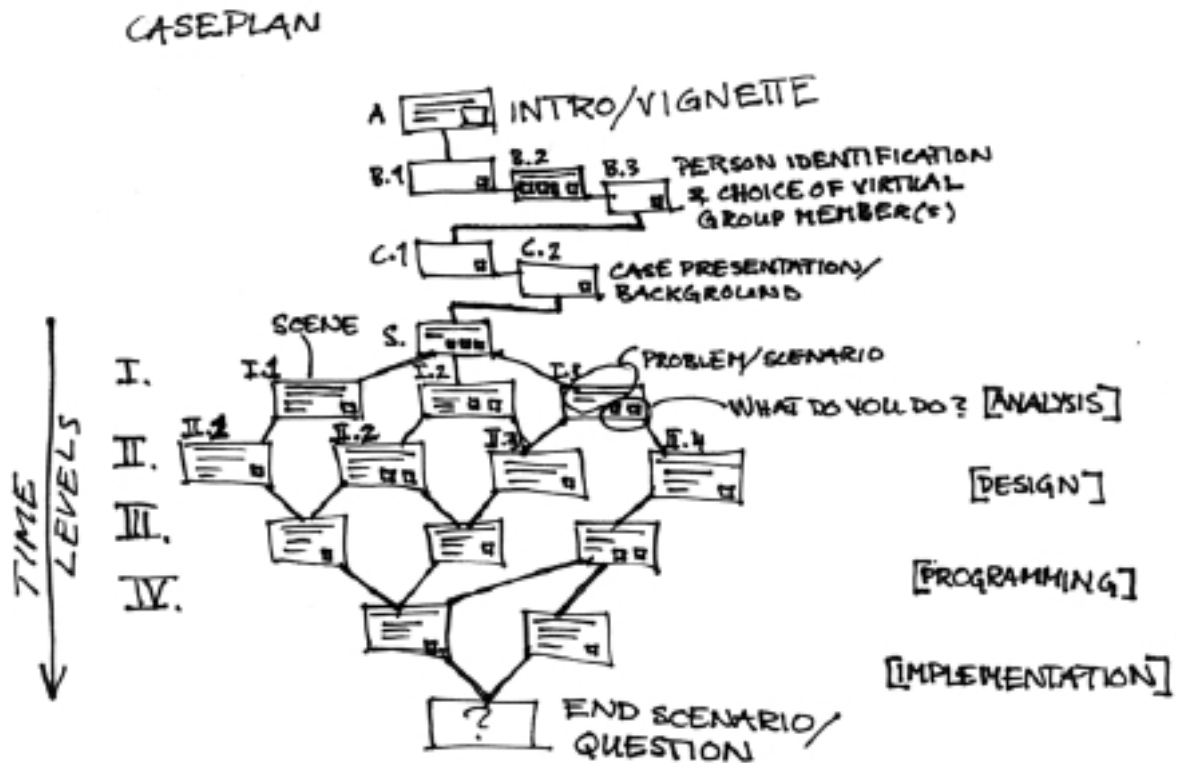 CASEPLAN
A INTRO/VIGNETTE
B.1 B.2 B.3 PERSON IDENTIFICATION
& CHOICE OF VIRTUAL
GROUP MEMBER(S)
C.1 C.2 CASE PRESENTATION/
BACKGROUND
S.
SCENE
PROBLEM/SCENARIO
I. I.1 I.2 I.3
WHAT DO YOU DO? [ANALYSIS]
II. II.1 II.2 II.3 II.4
[DESIGN]
III.
[PROGRAMMING]
IV.
[IMPLEMENTATION]
TIME
LEVELS
?
END SCENARIO/
QUESTION